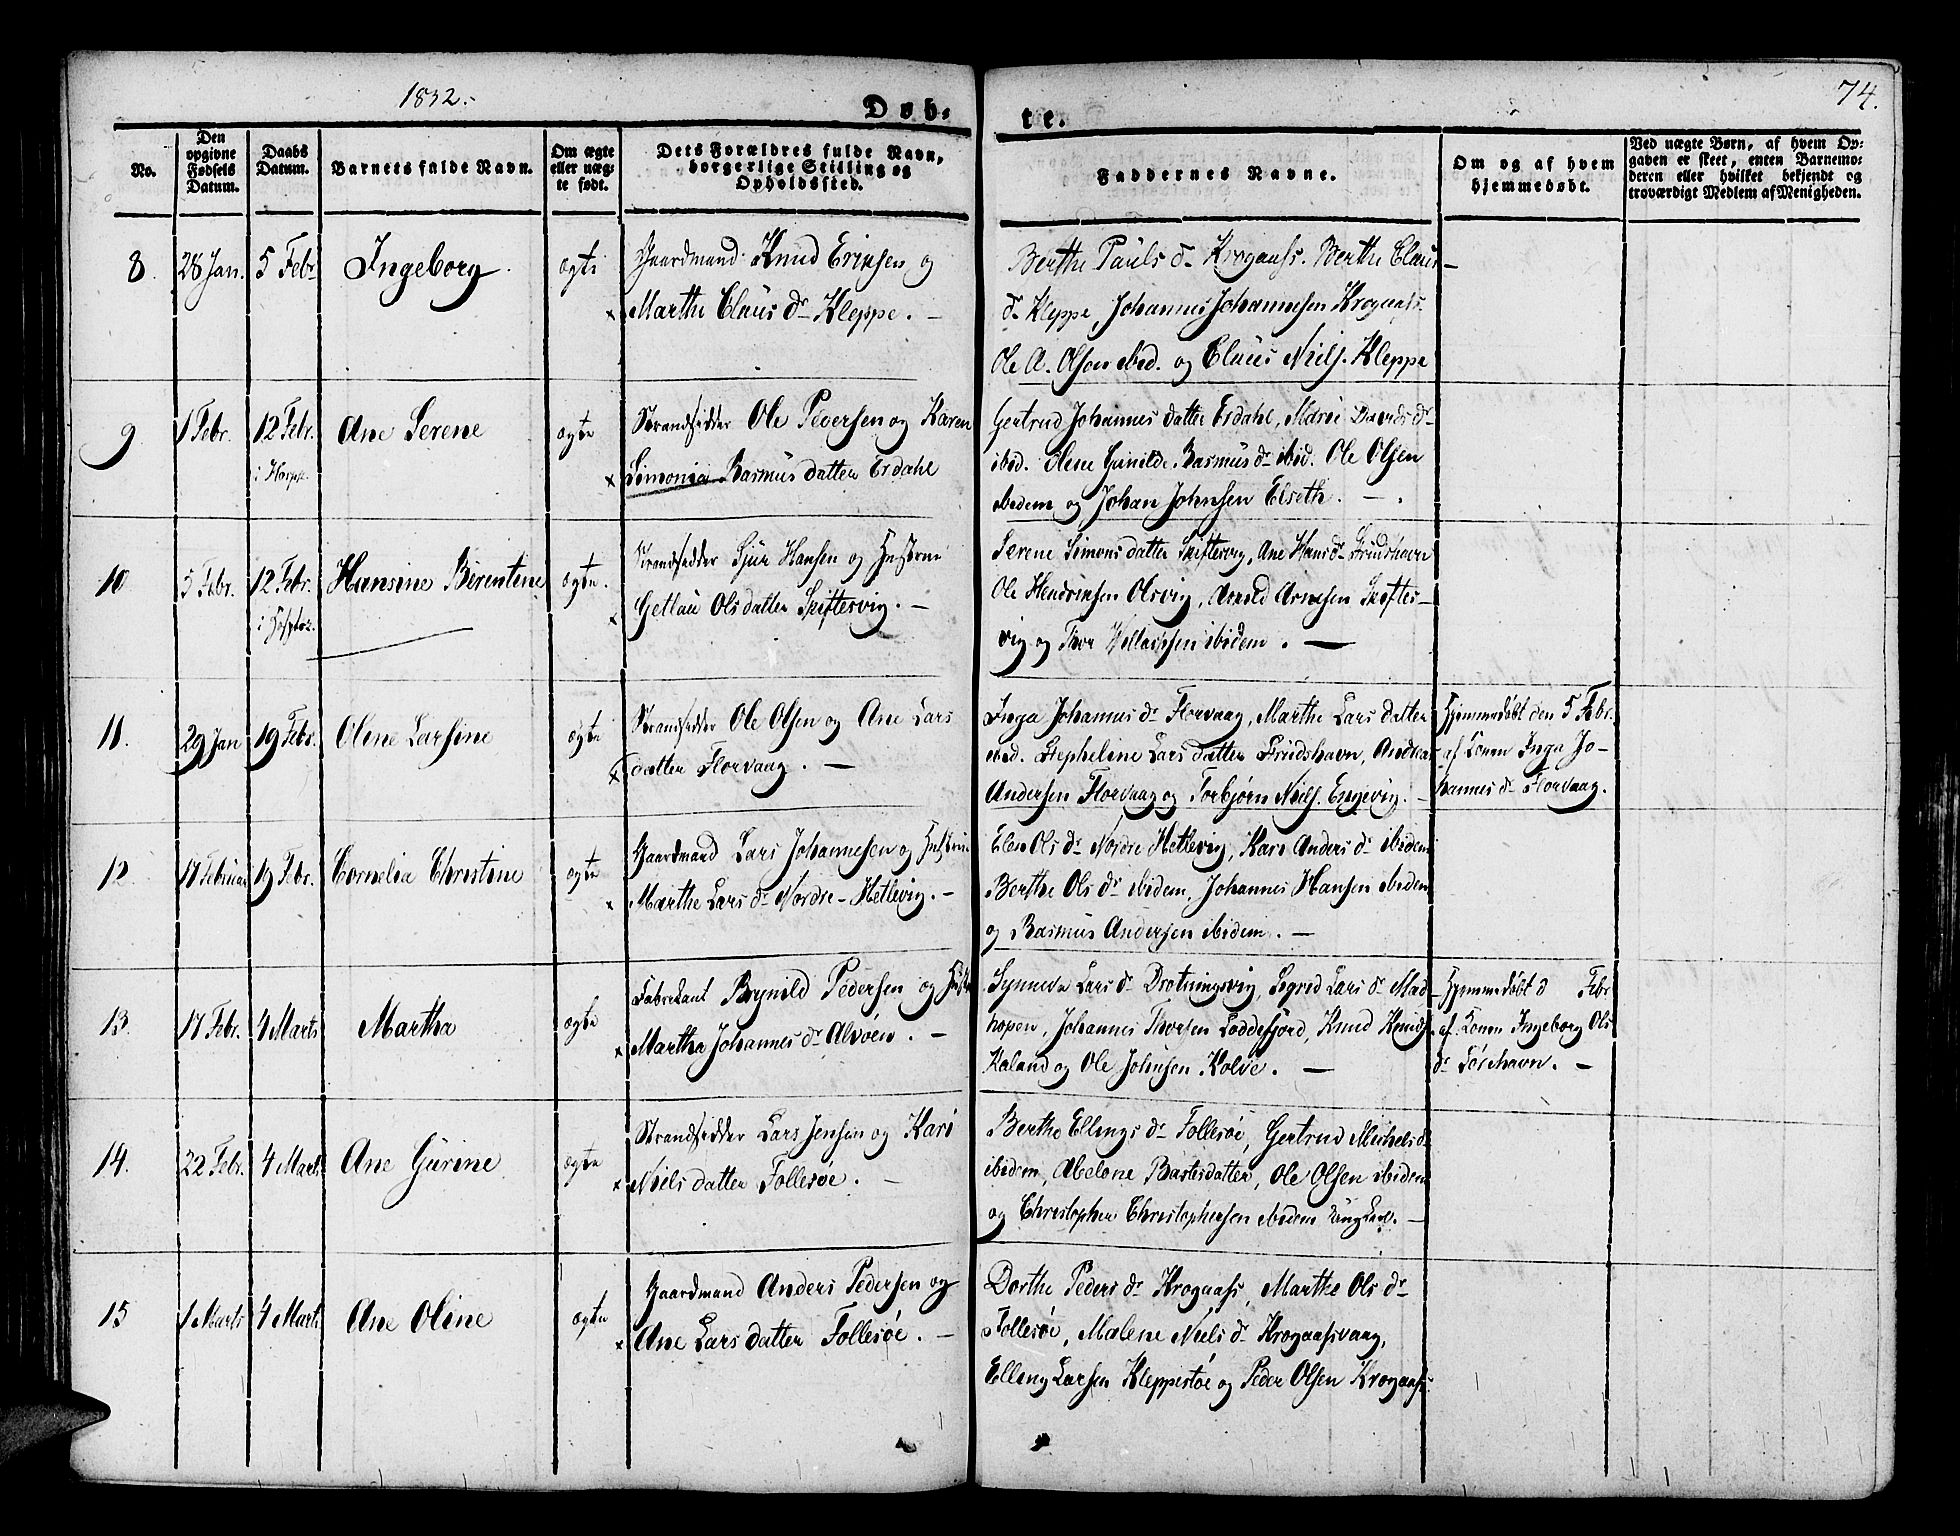 1832.
Døb-
te.
74.
No.
Den opgivne Fødsels Datum.
Daabs Datum.
Barnets fulde Navn.
Om ægte eller uægte født.
Dets Forældres fulde Navn, borgerlige Stilling og Opholdssted.
Faddernes Navne.
Om og af hvem hjemmedøbt.
Ved uægte Børn, af hvem Opgaven er skeet, enten Barnemoderen eller hvilket bekjendt og troværdigt Medlem af Menigheden.
8. 28 Jan. 5 Febr. Ingeborg. ægte
Gaardmand Knud Ericksen og
Marthe Claus dr Kleppe. –
Berthe Pauls dr Krogaass. Berthe Claus
dr Kleppe, Johannes Johannesen Krogaass.
Ole A. Olsen ibid. og Claus Niels. Kleppe
9. 1 Febr. 12 Febr. Ane Serene ægte
Strandsidder Ole Pedersen og Karen
Simonia Rasmus datter Erdahl
Gertrud Johannes datter Erdahl, Marie Davids dr
ibid. Olene Gunilde Rasmus dr ibid. Ole Olsen
ibidem og Johan Johnsen Elseth. – .
10 5 Febr. 12 Febr. Hansine Berentine ægte.
Strandsidder Sjur Hansen og Hustrue
Getlau Ols datter Skiftesvig. –
Serene Simons datter Skiftesvig, Ane Hans dr Friidshavn
Ole Hendricksen Olsvig, Arnold Arnesen Skiftes-
vig og Thor ibidem. –
11. 29 Jan 19 Febr. Oline Larsine ægte
Strandsidder Ole Olsen og Ane Lars
datter Florvaag. –
Inga Johannes dr Florvaag, Marthe Lars datter
ibid. Stepheline Lars datter Friidshavn, Andreas
Andersen Florvaag og Torbjørn Niels. Engevig. –
Hjemmedøbt den 5 Febr.
af Konen Inga Jo-
hannes dr Florvaag.
12. 17 Februar 19 Febr. Cornelia Christine ægte
Gaardmand Lars Johannesen og Hustrue
Marthe Lars dr Nordre-Hetlevig. –
Elen Ols dr Nordre Hetlevig, Kari Anders dr ibidem
Berthe Ols dr ibidem, Johannes Hansen ibidem
og Rasmus Andersen ibidem. –
13. 17 Febr. 4 Marts Martha ægte
Fabrikant Brynild Pedersen og Hustr
Martha Johannes dr Alvøen. –
Synneva Lars dr Drotningsvig, Segrid Lars dr Mad-
hopen, Johannes Thorsen Loddefjord, Knud Knuds.
Kaland og Ole Johnsen Kolve. –
Hjemmedøbt d Febr
af Konen Ingeborg Ols
dr –
14. 22 Febr. 4 Marts Ane Gurine ægte
Strandsidder Lars Jensen og Kari
Niels datter Follesøe. –
Berthe Ellings dr Follesøe, Gertrud Michels dr
ibidem, Abelone Bastesdatter, Ole Olsen ibidem
og Christopher Christophersen ibidem –
15 1 Marts 4 Marts Ane Oline ægte
Gaardmand Anders Pedersen og
Ane Lars datter Follesøe. –
Dorthe Peders dr Krogaass, Marthe Ols dr
Follesøe, Malene Niels dr Krogaasvaag,
Elling Larsen Kleppestøe og Peder Olsen Krogaass.